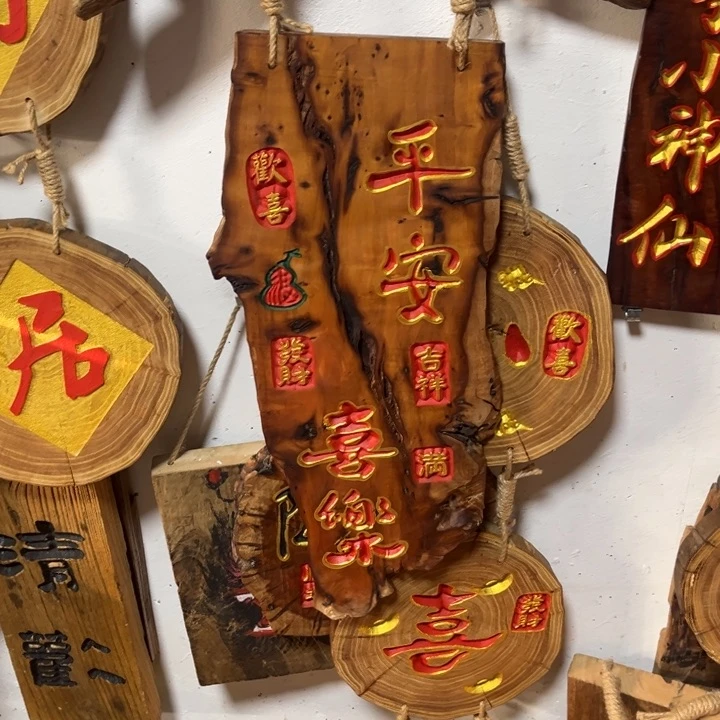 平安
吉祥
満
喜樂
歡喜
發財
歡喜
喜
發財
小神仙
居
清